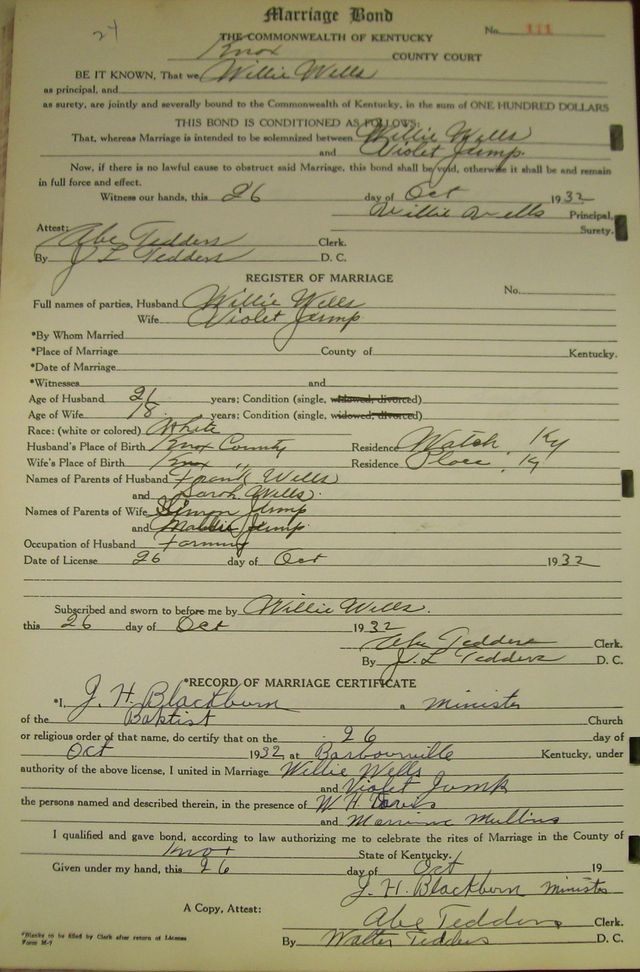 24
Marriage Bond
THE COMMONWEALTH OF KENTUCKY
No. 111
Knox COUNTY COURT
BE IT KNOWN, That we, Willie Wells
as principal, and
as surety, are jointly and severally bound to the Commonwealth of Kentucky, in the sum of ONE HUNDRED DOLLARS
THIS BOND IS CONDITIONED AS FOLLOWS:
That, whereas Marriage is intended to be solemnized between Willie Wells
and Violet Jump.
Now, if there is no lawful cause to obstruct said Marriage, this bond shall be void, otherwise it shall be and remain
in full force and effect.
Witness our hands, this 26 day of Oct 1932
Willie Wells Principal.
Surety.
Attest:
Abe Tedders Clerk.
By J L Tedders D. C.
REGISTER OF MARRIAGE
No.
Full names of parties, Husband Willie Wells
Wife Violet Jump
*By Whom Married
*Place of Marriage County of Kentucky.
*Date of Marriage
*Witnesses and
Age of Husband 26 years; Condition (single, widowed, divorced)
Age of Wife 18 years; Condition (single, widowed, divorced)
Race: (white or colored) White
Husband's Place of Birth Knox County Residence Watch, Ky
Wife's Place of Birth Knox " Residence Place, Ky
Names of Parents of Husband Frank Wells
and Sarah Wells.
Names of Parents of Wife Simon Jump
and Jump.
Occupation of Husband Farming
Date of License 26 day of Oct 1932
Subscribed and sworn to before me by Willie Wells.
this 26 day of Oct 1932
Abe Tedders Clerk.
By J. L Tedders D. C.
*RECORD OF MARRIAGE CERTIFICATE
*I, J. H. Blackburn a Minister
of the Baptist Church
or religious order of that name, do certify that on the 26 day of
Oct 1932 at Barbourville Kentucky, under
authority of the above license, I united in Marriage Willie Wells
and Violet Jump
the persons named and described therein, in the presence of W. H. Davis
and Mullins
I qualified and gave bond, according to law authorizing me to celebrate the rites of Marriage in the County of
Knox State of Kentucky.
Given under my hand, this 26 day of Oct 19
J. H. Blackburn Minister
A Copy, Attest: Abe Tedders Clerk.
By Walter Tedders D. C.
*Blanks to be filled by Clerk after return of License
Form M-7